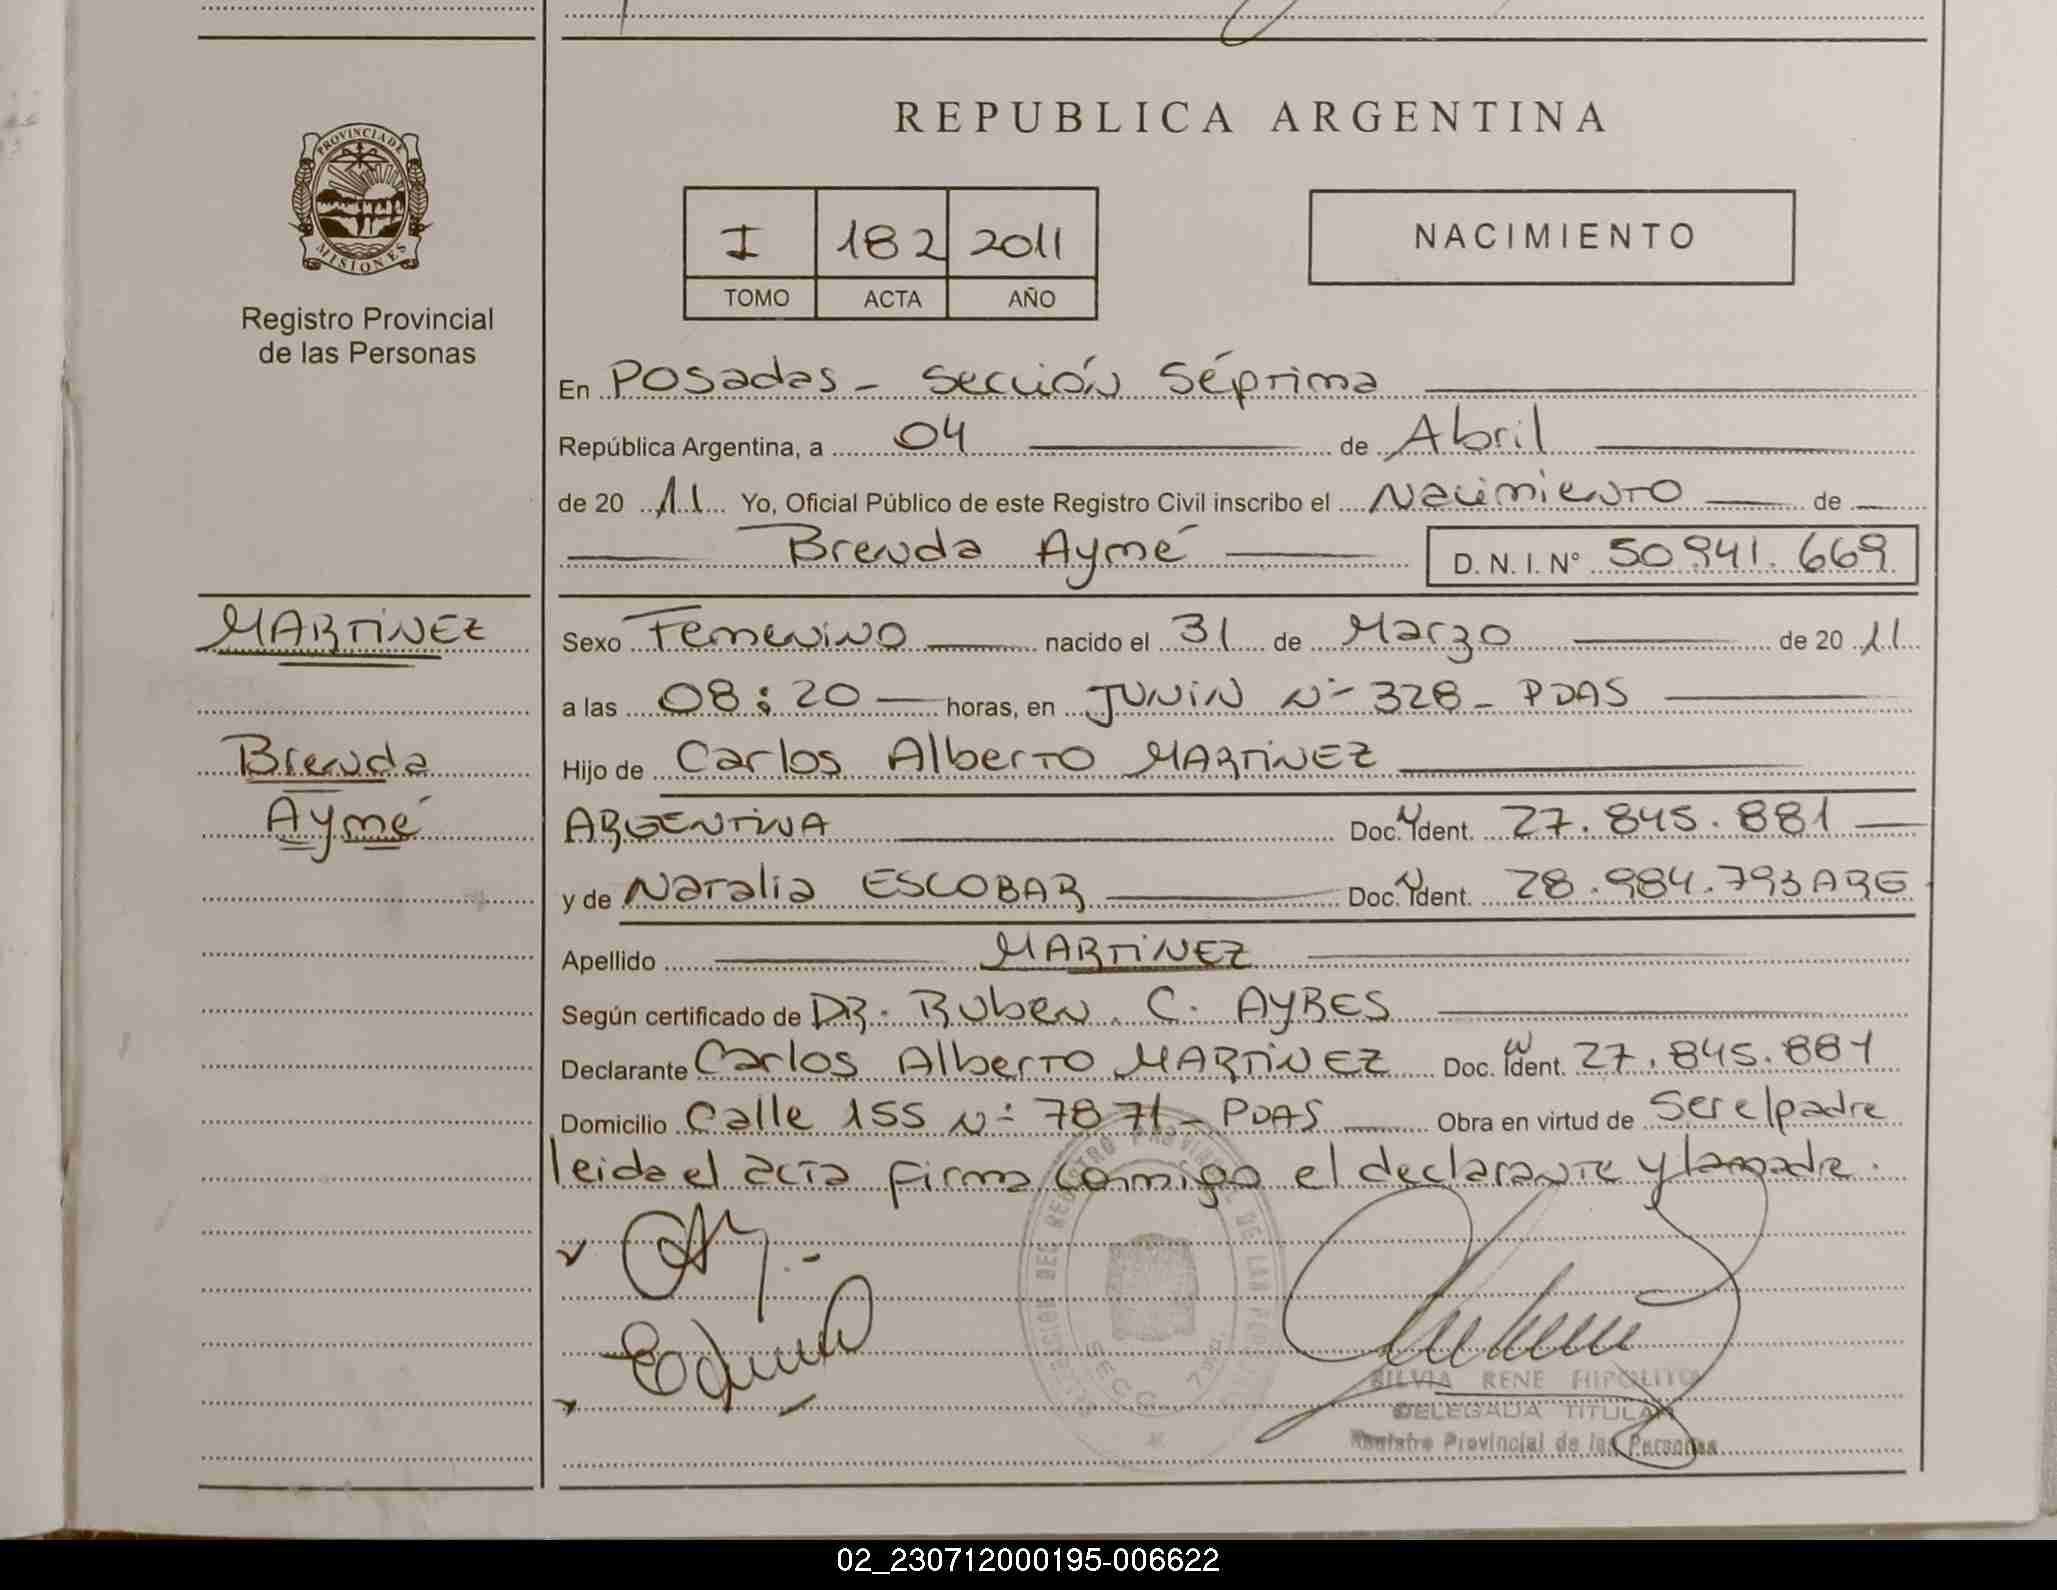 REPUBLICA ARGENTINA
PROVINCIA DE
MISIONES
Registro Provincial
de las Personas
I 182 2011
TOMO ACTA AÑO
NACIMIENTO
En Posadas - Sección Séptima
República Argentina, a 04 de Abril
de 20 11 Yo, Oficial Público de este Registro Civil inscribo el Nacimiento de
Brenda Aymé D. N. I. Nº 50.941.669
MARTINEZ
Brenda
Aymé
Sexo Femenino nacido el 31 de Marzo de 20 11
a las 08:20 horas, en JUNIN Nº 328 - PDAS
Hijo de Carlos Alberto MARTINEZ
ARGENTINA Doc. Ident. 27.845.881
y de Natalia ESCOBAR Doc. Ident. 28.984.793 ARG
Apellido MARTINEZ
Según certificado de DR. Ruben C. AYRES
Declarante Carlos Alberto MARTINEZ Doc. Ident. 27.845.881
Domicilio Calle 155 Nº 7871 - PDAS Obra en virtud de Ser el padre
leida el acta firma conmigo el declarante y la madre.
SECC. 7ma.
SILVIA RENE HIPOLITO
DELEGADA TITULAR
Registro Provincial de las Personas
02_230712000195-006622